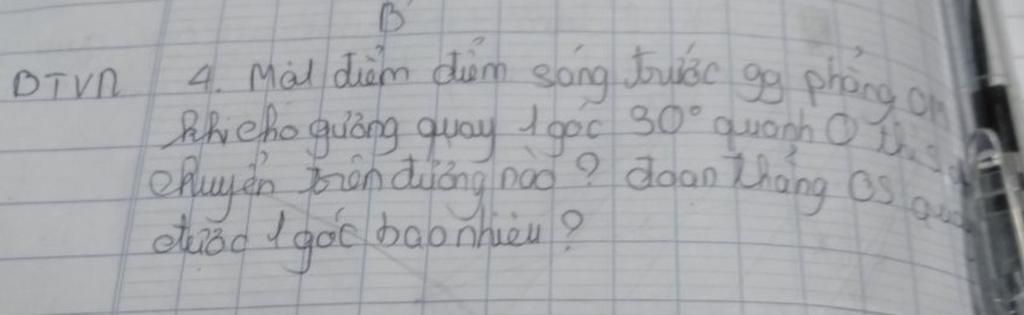 B
DTVN 4. Một điểm điểm sáng trước gg phẳng OM
Khi cho gương quay 1 góc 30° quanh O thì
chuyển trên đường nào? đoạn thẳng OS
được 1 góc bao nhiêu?